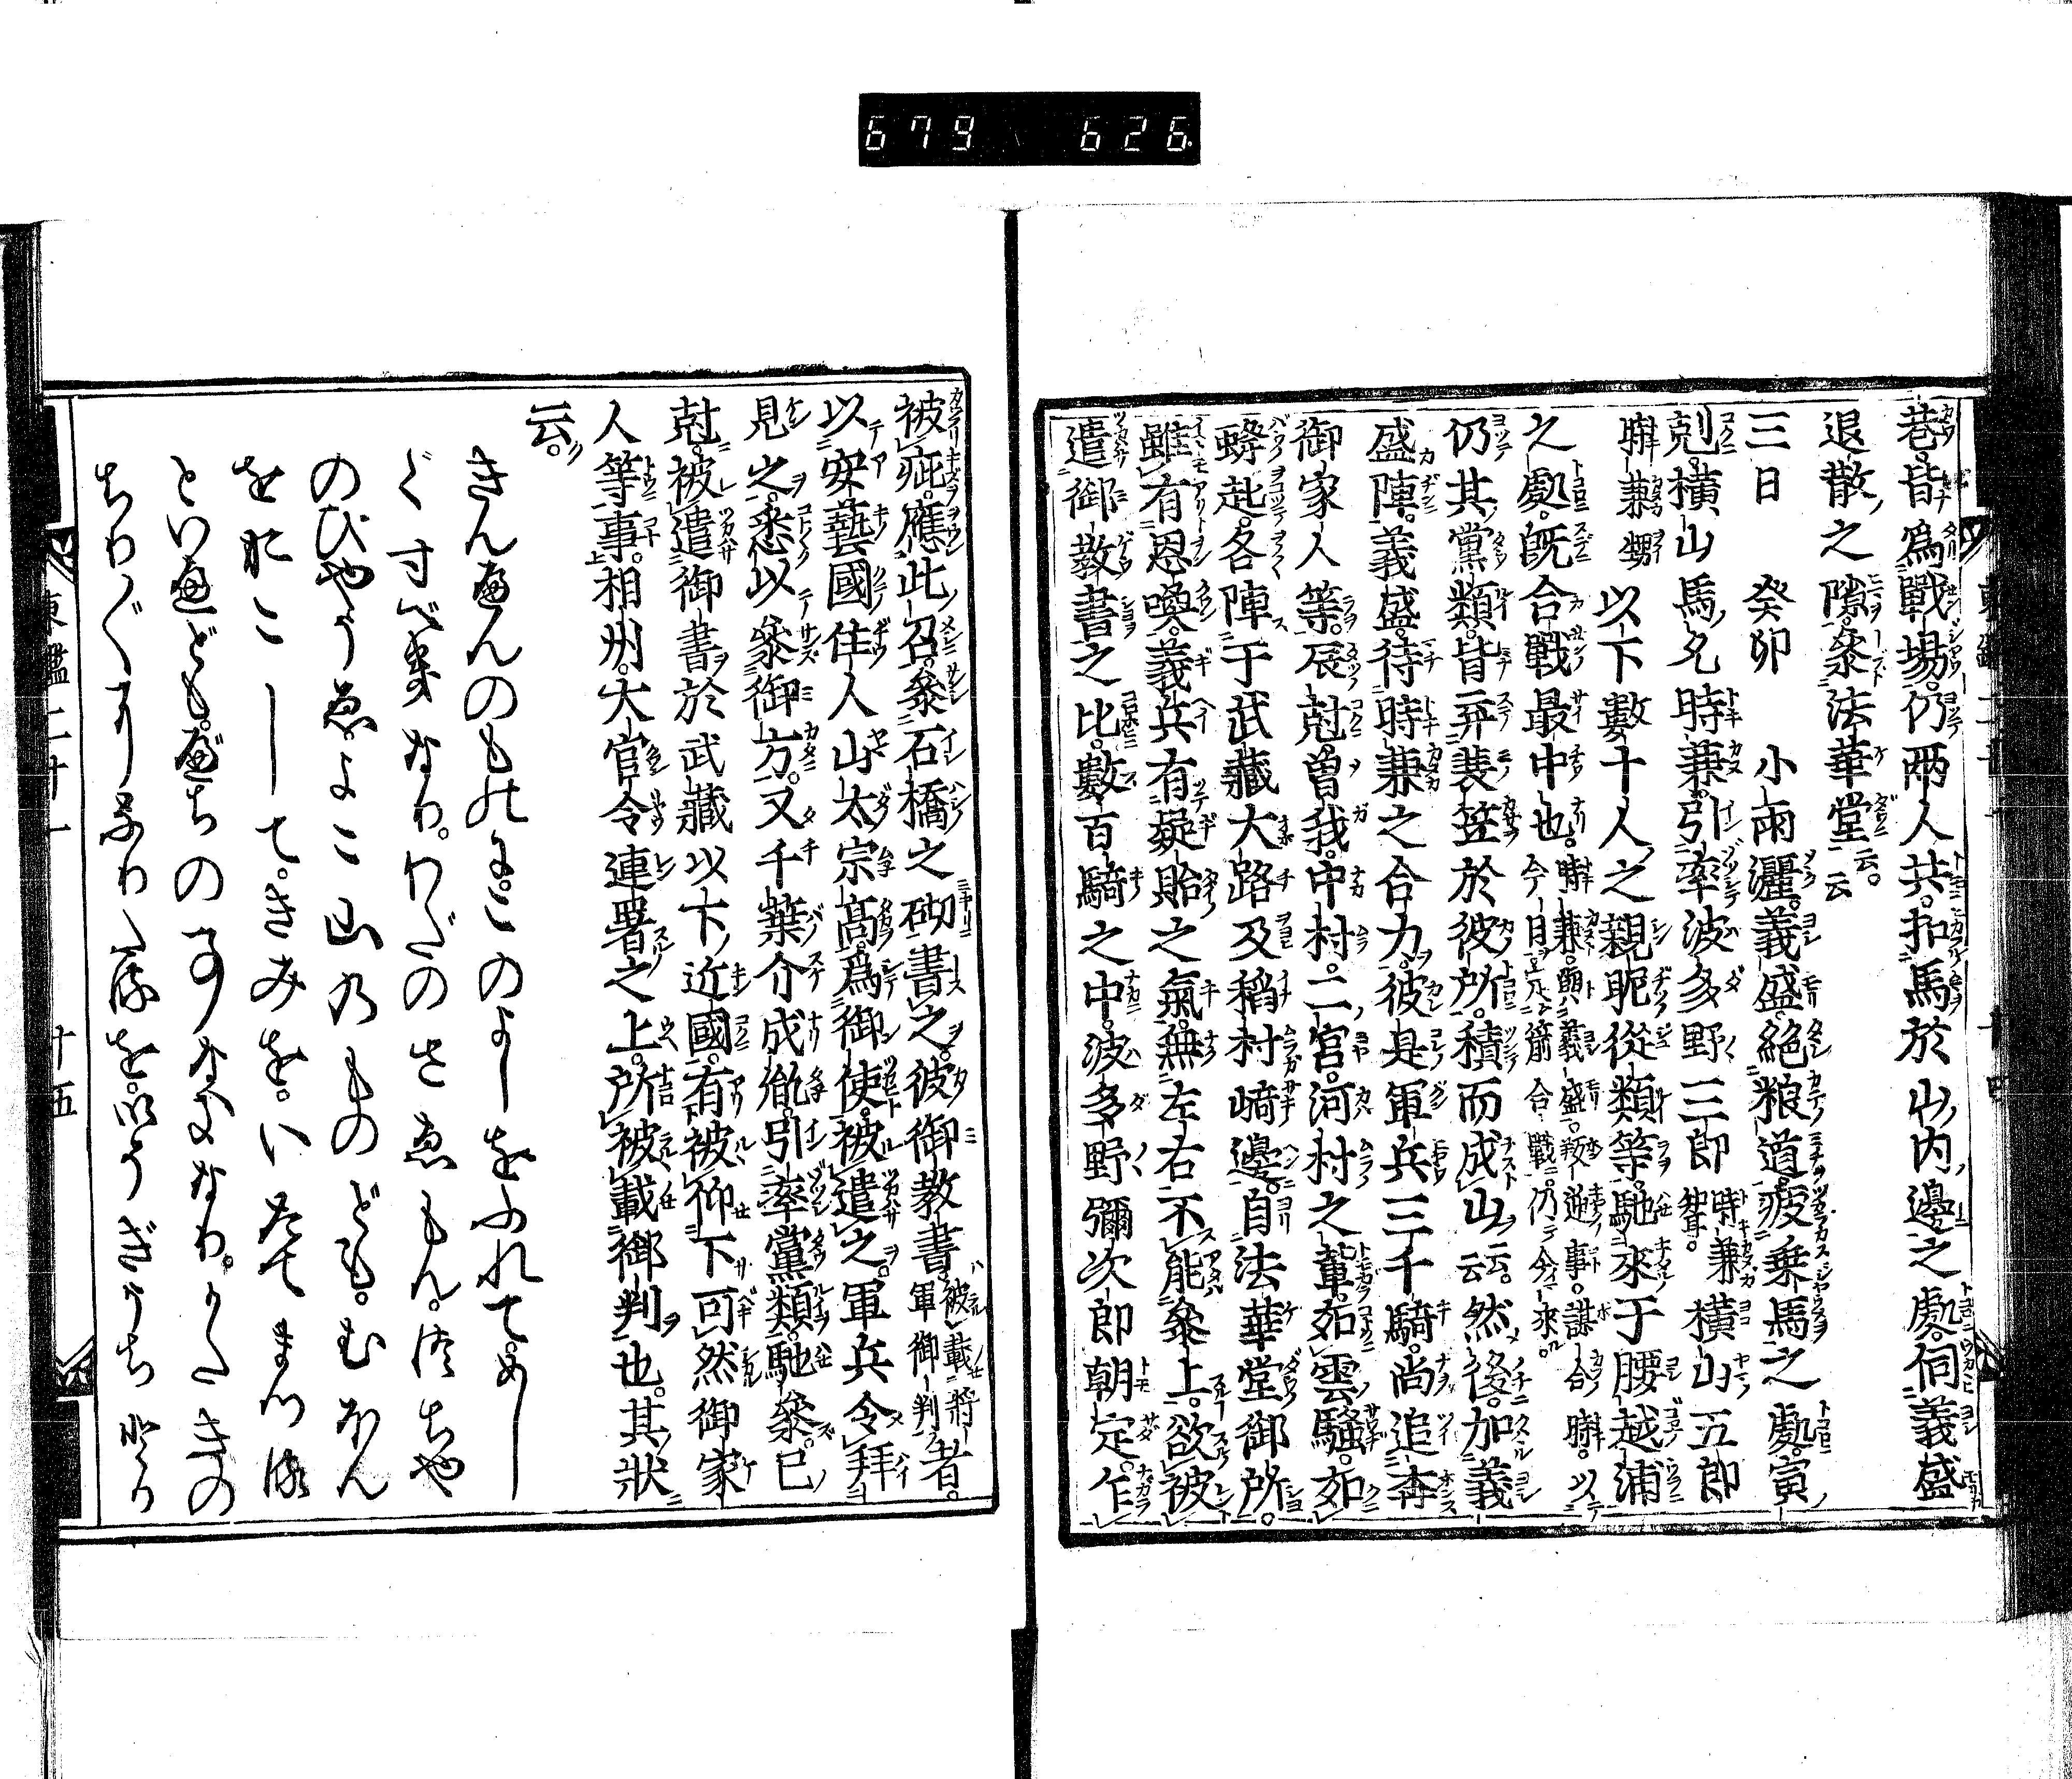 679 626
巷。皆爲戰場。仍兩人共。扣馬於山内邊之處。伺義盛
退散之隙。參法華堂云云。
三日 癸卯 小雨灑。義盛絕粮道。疲乗馬之處。寅
剋。横山馬允時兼。引率波多野三郎時兼聟。横山五郎
時兼甥以下數十人之親昵從類等。馳來于腰越浦
之處。既合戰最中也。時兼與義盛。叛逆事。謀合時。以今日定箭合戰。仍今來。
仍其黨類。皆弃蓑笠於彼所。積而成山云云。然後。加義
盛陣。義盛。待時兼之合力。彼是軍兵三千騎。尚追奔
御家人等。辰剋。曾我。中村。二宮。河村之輩。如雲騷。如
蜂起。各陣于武藏大路及稻村﨑邊。自法華堂御所。
雖有恩喚。義兵有疑貽之氣。無左右不能參上。欲被
遣御教書之比。數百騎之中。波多野彌次郎朝定。乍
被疵。應此召。參石橋之砌書之。彼御教書。被載將軍御判者。
以安藝國住人山太宗高。爲御使。被遣之。軍兵令拜
見之。悉以參御方。又千葉介成胤。引率黨類。馳參。巳
剋。被遣御書於武藏以下近國。有被仰下可然御家
人等事。相州。大官令連署之上。所被載御判也。其狀
云。
きんへんのものに。このよしをふれて。めし
ぐすべきなり。わだのさゑもん。つちや
のひやうゑ。よこ山のものども。むほん
をおこして。きみを。いたてまつる
といへども。べちの事なきなり。かたきの